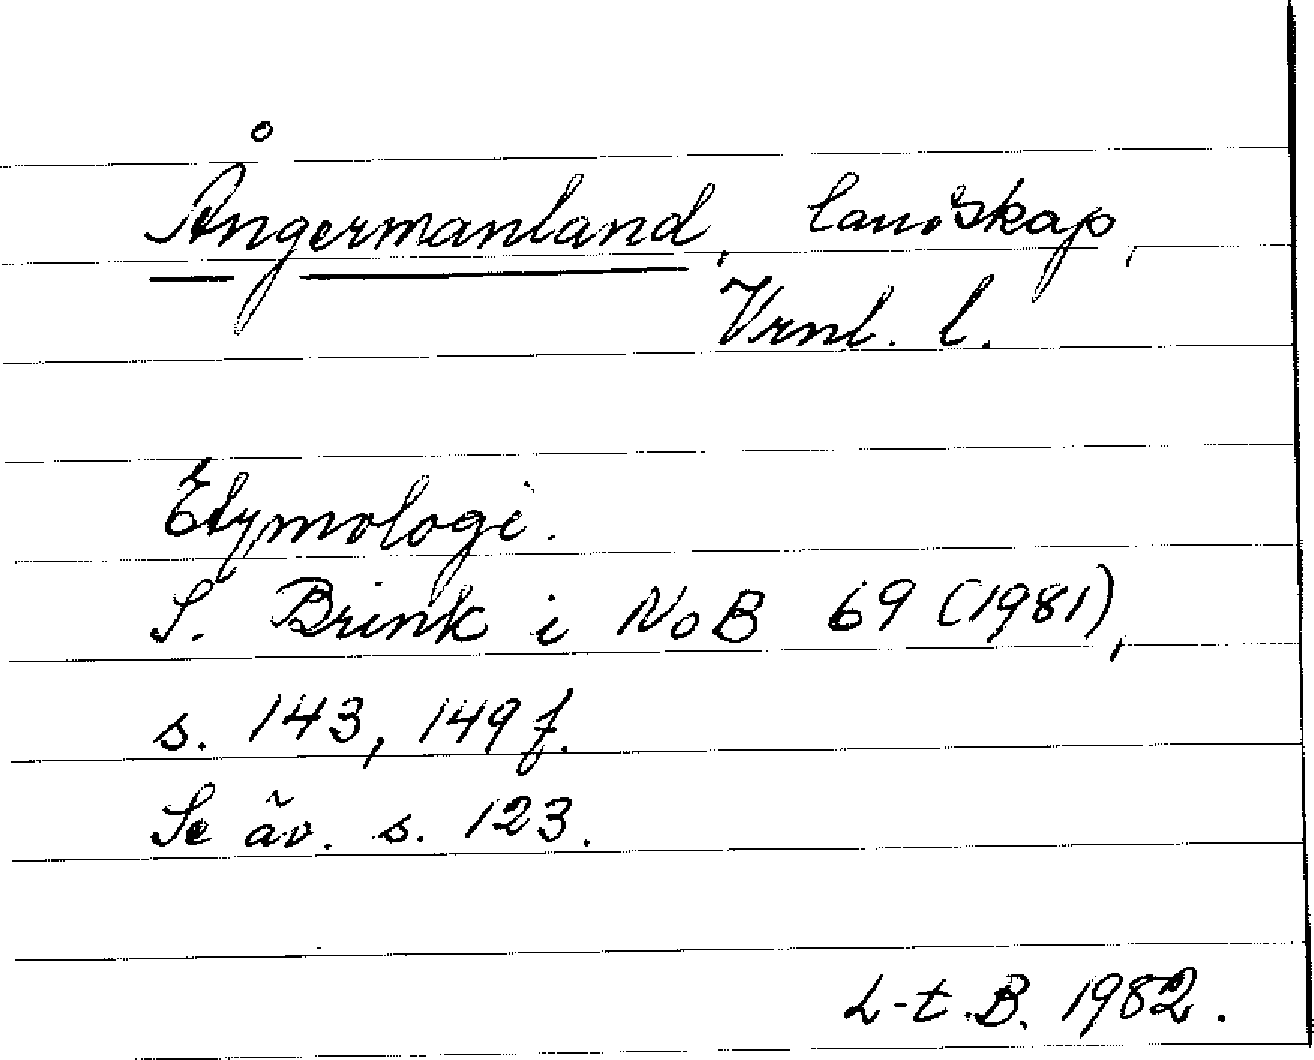 Ångermanland, landskap,
Vrnl. l.
Etymologi.
S. Brink i NoB 69 (1981),
s. 143, 149 f.
Se äv. s. 123.
L-t.B. 1982.